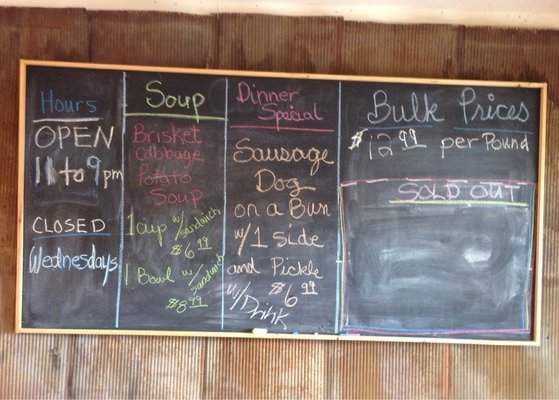 Hours
OPEN
11 to 9 pm
CLOSED
Wednesdays
Soup
Brisket
Cabbage
Potato
Soup
1 Cup w/ Sandwich
$6.99
1 Bowl w/ Sandwich
$8.99
Dinner
Special
Sausage
Dog
on a Bun
w/ 1 side
and Pickle
w/ Drink $6.99
Bulk Prices
$12.99 per Pound
SOLD OUT